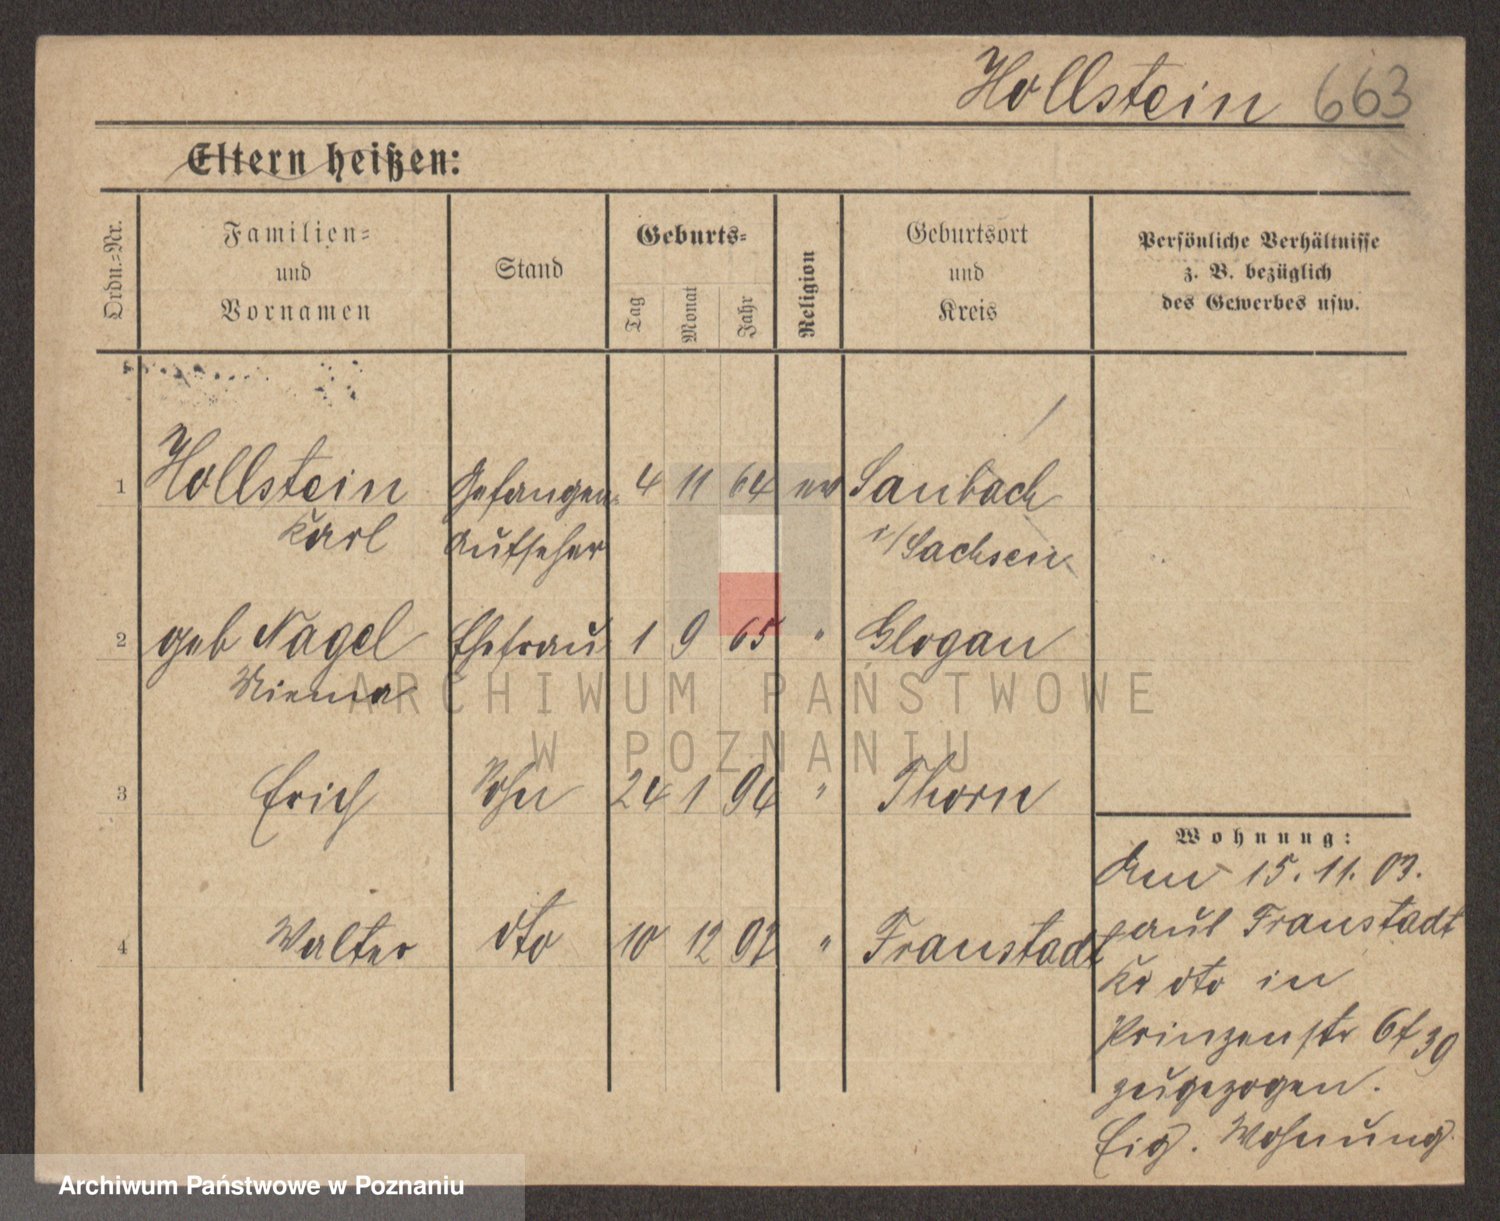 Hollstein 663
Eltern heißen:
Ordn.=Nr.
Familien=
und
Vornamen
Stand
Geburts=
Tag
Monat
Jahr
Religion
Geburtsort
und
Kreis
Persönliche Verhältnisse
z. B. bezüglich
des Gewerbes usw.
1 Hollstein Gefangen= 4 11 64 ev Saubach
Karl Aufseher i/Sachsen
2 geb Nagel Ehefrau 1 9 65 " Glogau
ARCHIWUM PAŃSTWOWE
W POZNANIU
3 Erich Sohn 24 1 94 " Thorn
Wohnung:
Am 15. 11. 03.
4 Walter dto 10 12 " Fraustadt
Fraustadt
Kr dto in
Prinzenstr 39
zugezogen.
Eig. Wohnung.
Archiwum Państwowe w Poznaniu